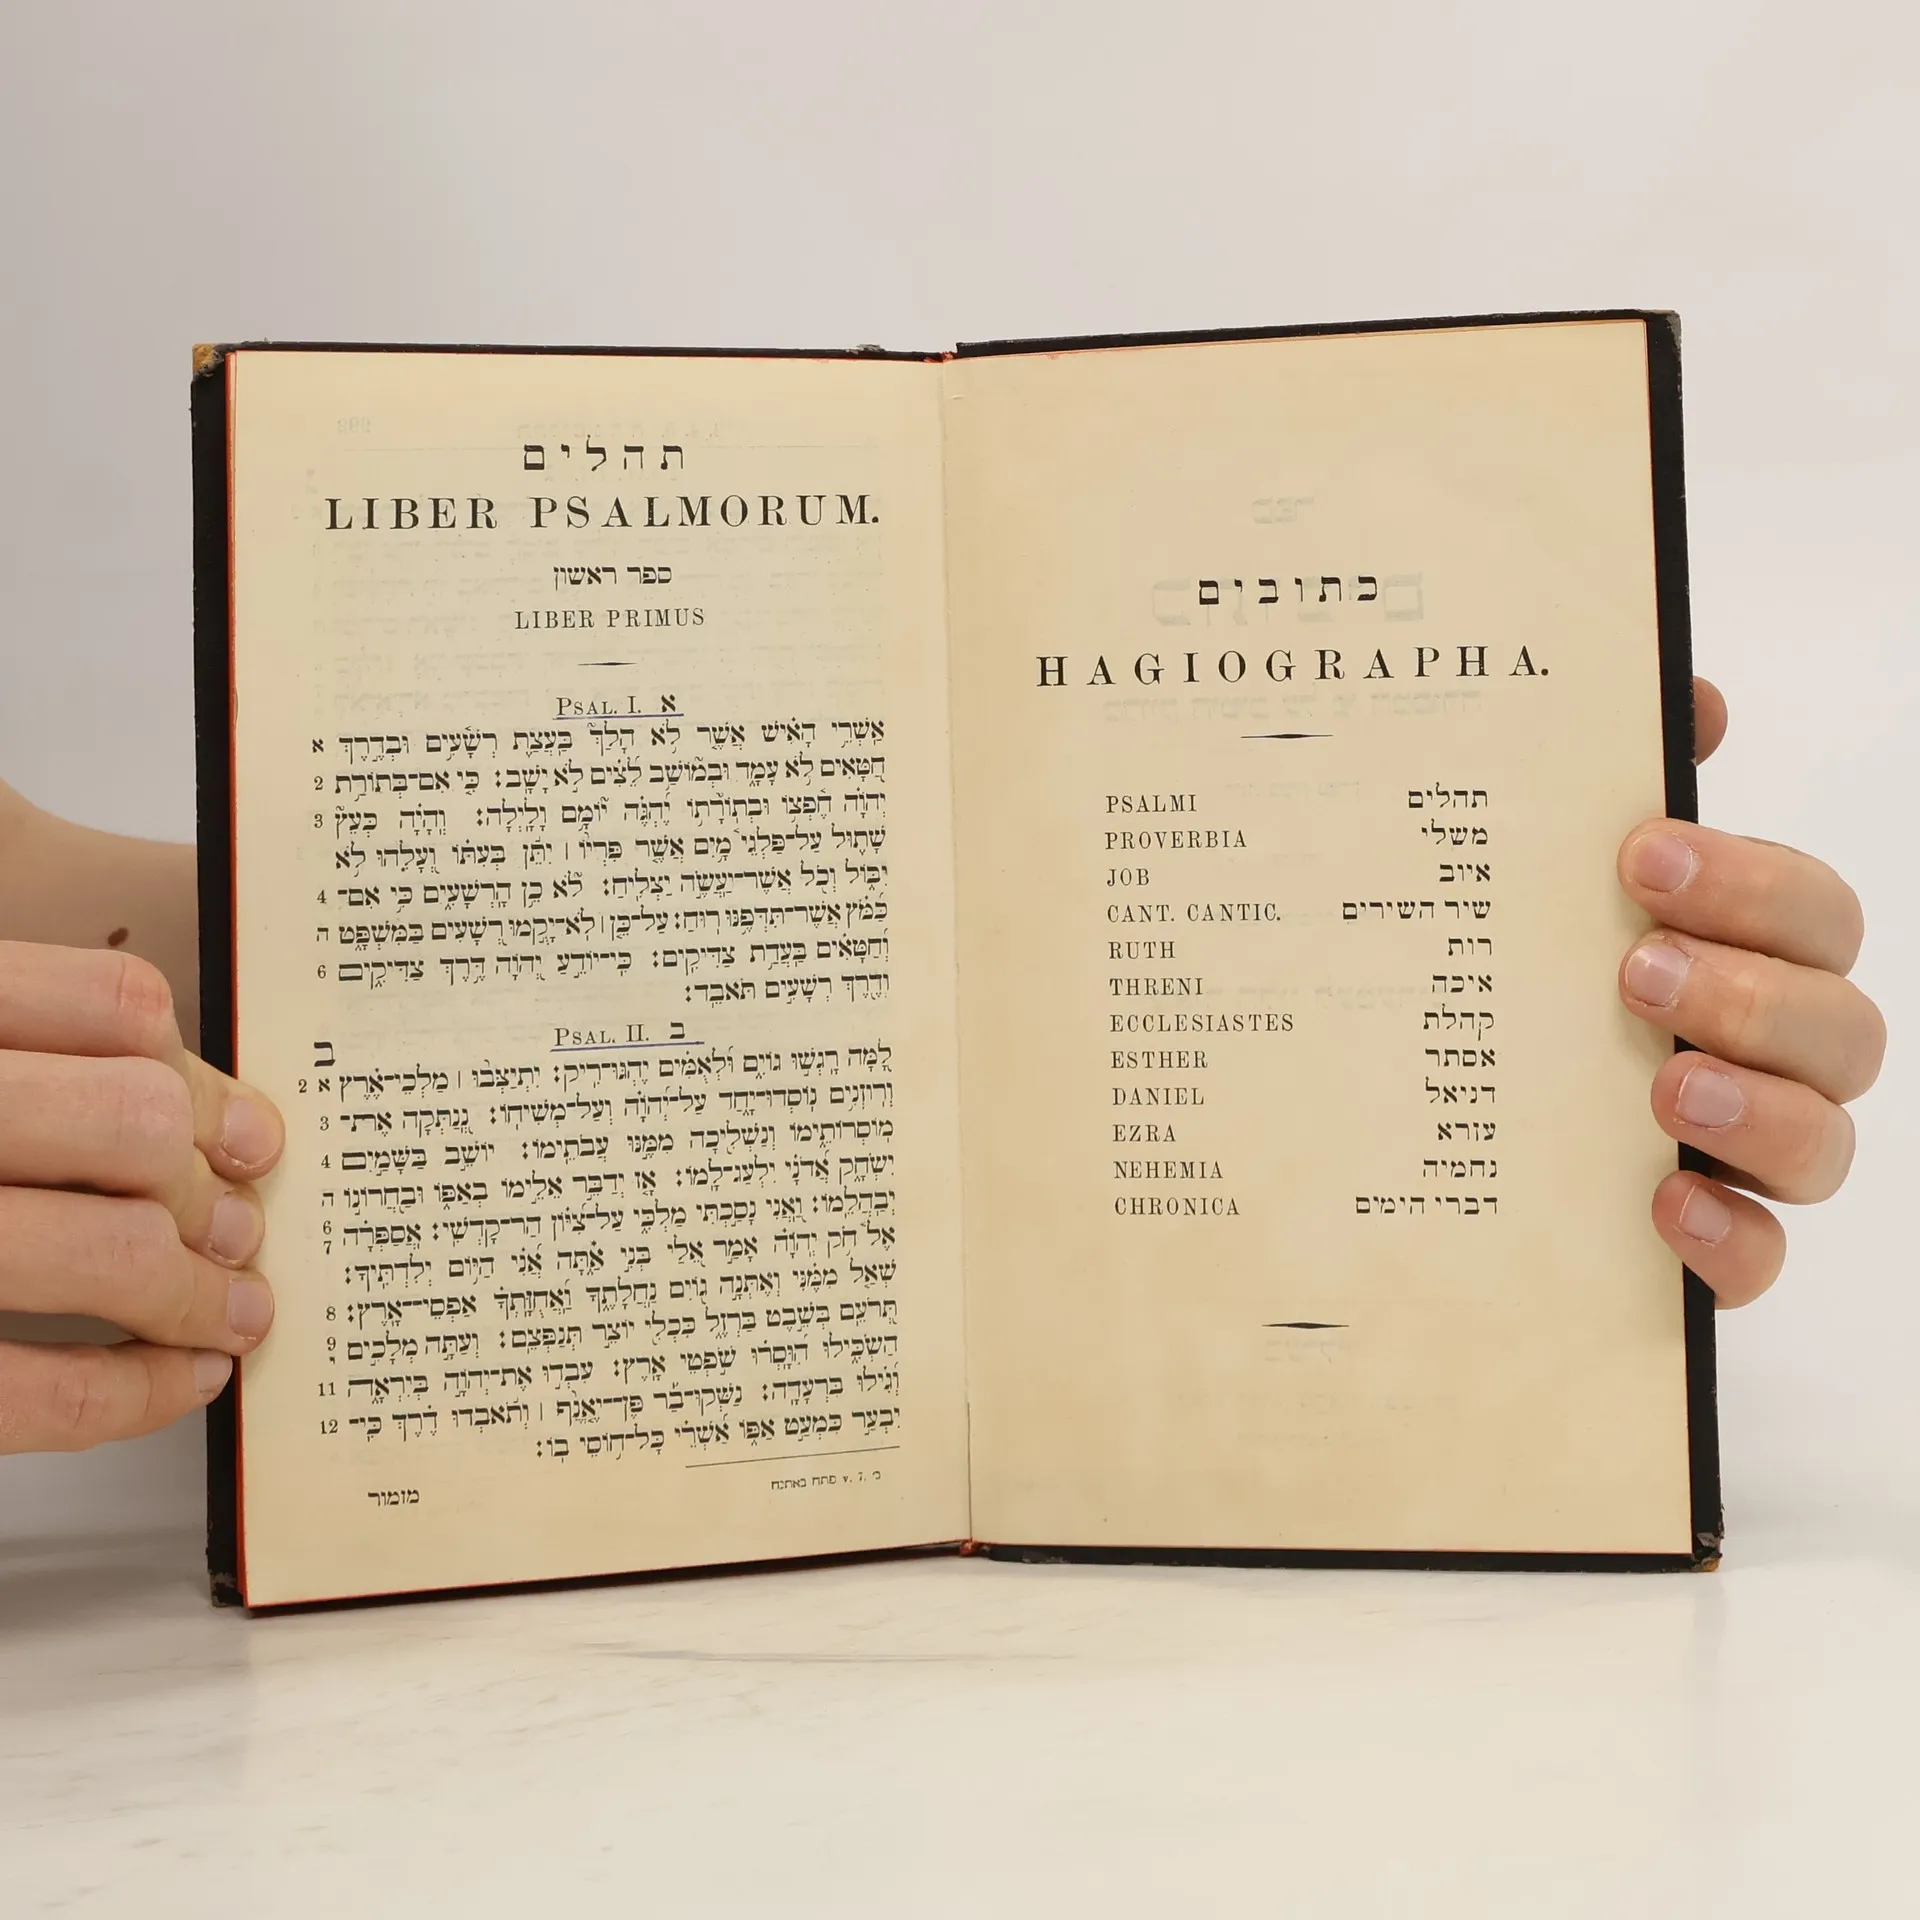 כתובים
HAGIOGRAPHA.
PSALMI תהלים
PROVERBIA משלי
JOB איוב
CANT. CANTIC. שיר השירים
RUTH רות
THRENI איכה
ECCLESIASTES קהלת
ESTHER אסתר
DANIEL דניאל
EZRA עזרא
NEHEMIA נחמיה
CHRONICA דברי הימים
תהלים
LIBER PSALMORUM.
ספר ראשון
LIBER PRIMUS
PSAL. I. א
א אַשְׁרֵי הָאִישׁ אֲשֶׁר לֹא הָלַךְ בַּעֲצַת רְשָׁעִים וּבְדֶרֶךְ
2 חַטָּאִים לֹא עָמָד וּבְמוֹשַׁב לֵצִים לֹא יָשָׁב: כִּי אִם־בְּתוֹרַת
3 יְהוָֹה חֶפְצוֹ וּבְתוֹרָתוֹ יֶהְגֶּה יוֹמָם וָלָיְלָה: וְהָיָה כְּעֵץ
שָׁתוּל עַל־פַּלְגֵי מָיִם אֲשֶׁר פִּרְיוֹ ׀ יִתֵּן בְּעִתּוֹ וְעָלֵהוּ לֹא
4 יִבּוֹל וְכֹל אֲשֶׁר־יַעֲשֶׂה יַצְלִיחַ: לֹא כֵן הָרְשָׁעִים כִּי אִם־
ה כַּמֹּץ אֲשֶׁר־תִּדְּפֶנּוּ רוּחַ: עַל־כֵּן ׀ לֹא־יָקֻמוּ רְשָׁעִים בַּמִּשְׁפָּט
6 וְחַטָּאִים בַּעֲדַת צַדִּיקִים: כִּי־יוֹדֵעַ יְהוָֹה דֶּרֶךְ צַדִּיקִים
וְדֶרֶךְ רְשָׁעִים תֹּאבֵד:
PSAL. II. ב
ב
2 א לָמָּה רָגְשׁוּ גוֹיִם וּלְאֻמִּים יֶהְגּוּ־רִיק: יִתְיַצְּבוּ ׀ מַלְכֵי־אֶרֶץ
3 וְרוֹזְנִים נוֹסְדוּ־יָחַד עַל־יְהוָֹה וְעַל־מְשִׁיחוֹ: נְנַתְּקָה אֶת־
4 מוֹסְרוֹתֵימוֹ וְנַשְׁלִיכָה מִמֶּנּוּ עֲבֹתֵימוֹ: יוֹשֵׁב בַּשָּׁמַיִם
ה יִשְׂחָק אֲדֹנָי יִלְעַג־לָמוֹ: אָז יְדַבֵּר אֵלֵימוֹ בְאַפּוֹ וּבַחֲרוֹנוֹ
6 7 יְבַהֲלֵמוֹ: וַאֲנִי נָסַכְתִּי מַלְכִּי עַל־צִיּוֹן הַר־קָדְשִׁי: אֲסַפְּרָה
אֶל חֹק יְהוָֹה אָמַר אֵלַי בְּנִי אַתָּה אֲנִי הַיּוֹם יְלִדְתִּיךָ:
8 שְׁאַל מִמֶּנִּי וְאֶתְּנָה גוֹיִם נַחֲלָתֶךָ וַאֲחֻזָּתְךָ אַפְסֵי־אָרֶץ:
9 י תְּרֹעֵם בְּשֵׁבֶט בַּרְזֶל כִּכְלִי יוֹצֵר תְּנַפְּצֵם: וְעַתָּה מְלָכִים
11 הַשְׂכִּילוּ הִוָּסְרוּ שֹׁפְטֵי אָרֶץ: עִבְדוּ אֶת־יְהוָֹה בְּיִרְאָה
12 וְגִילוּ בִּרְעָדָה: נַשְּׁקוּ־בַר פֶּן־יֶאֱנַף ׀ וְתֹאבְדוּ דֶרֶךְ כִּי־
יִבְעַר כִּמְעַט אַפּוֹ אַשְׁרֵי כָּל־חוֹסֵי בוֹ:
v. 7. פתח באתנח
מזמור